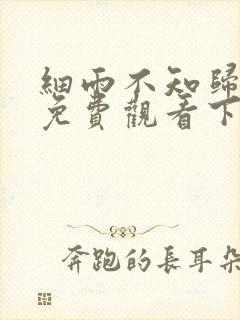 細雨不知歸
免費觀看下
奔跑的長耳朵